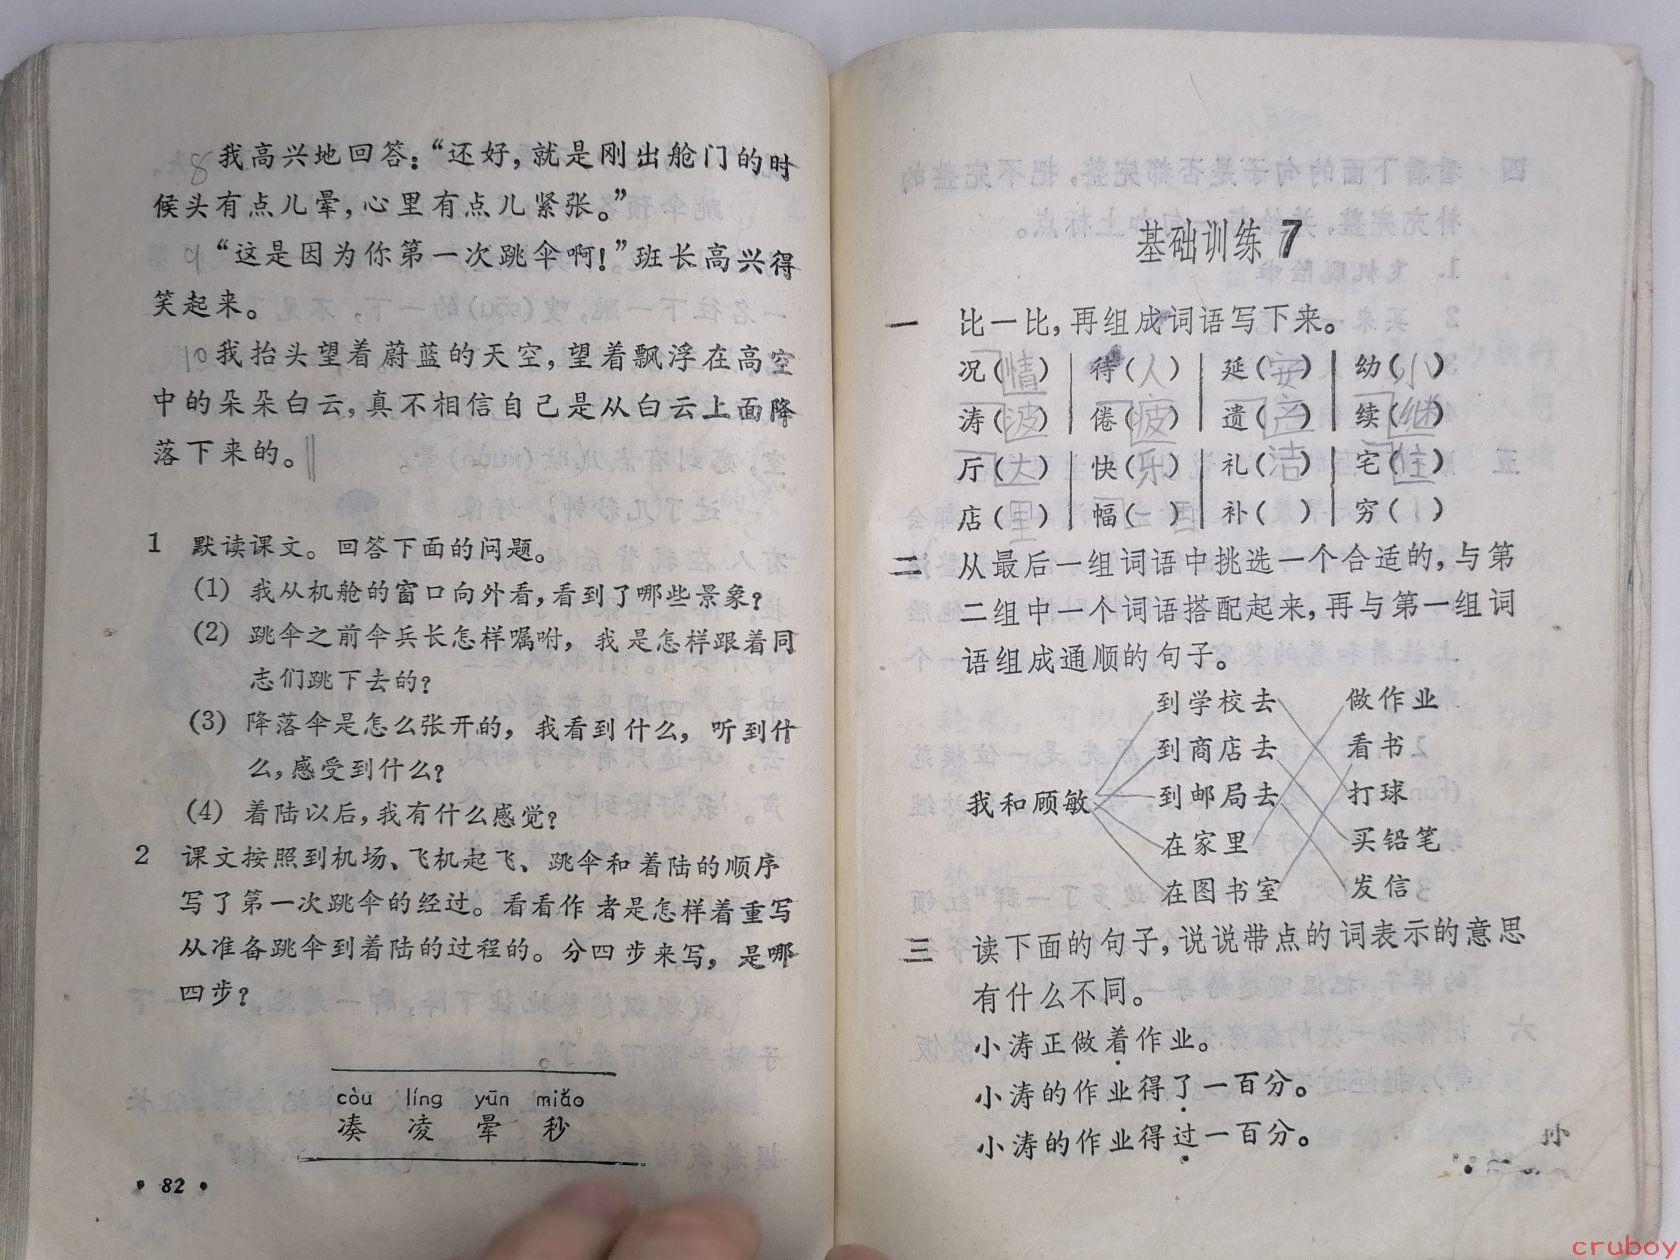 8 我高兴地回答：“还好，就是刚出舱门的时
候头有点儿晕，心里有点儿紧张。”
9 “这是因为你第一次跳伞啊！”班长高兴得
笑起来。
10 我抬头望着蔚蓝的天空，望着飘浮在高空
中的朵朵白云，真不相信自己是从白云上面降
落下来的。
1 默读课文。回答下面的问题。
(1) 我从机舱的窗口向外看，看到了哪些景象？
(2) 跳伞之前伞兵长怎样嘱咐，我是怎样跟着同
志们跳下去的？
(3) 降落伞是怎么张开的，我看到什么，听到什
么，感受到什么？
(4) 着陆以后，我有什么感觉？
2 课文按照到机场、飞机起飞、跳伞和着陆的顺序
写了第一次跳伞的经过。看看作者是怎样着重写
从准备跳伞到着陆的过程的。分四步来写，是哪
四步？
còu líng yūn miǎo
凑 凌 晕 秒
• 82 •
基础训练 7
一 比一比，再组成词语写下来。
况(情) 待(人) 延(安) 幼(小)
涛(波) 倦(疲) 遗(产) 续(继)
厅(大) 快(乐) 礼(洁) 宅(住)
店(里) 幅(一) 补( ) 穷( )
二 从最后一组词语中挑选一个合适的，与第
二组中一个词语搭配起来，再与第一组词
语组成通顺的句子。
到学校去 做作业
到商店去 看书
我和顾敏 到邮局去 打球
在家里 买铅笔
在图书室 发信
三 读下面的句子，说说带点的词表示的意思
有什么不同。
小涛正做着作业。
小涛的作业得了一百分。
小涛的作业得过一百分。
cruboy